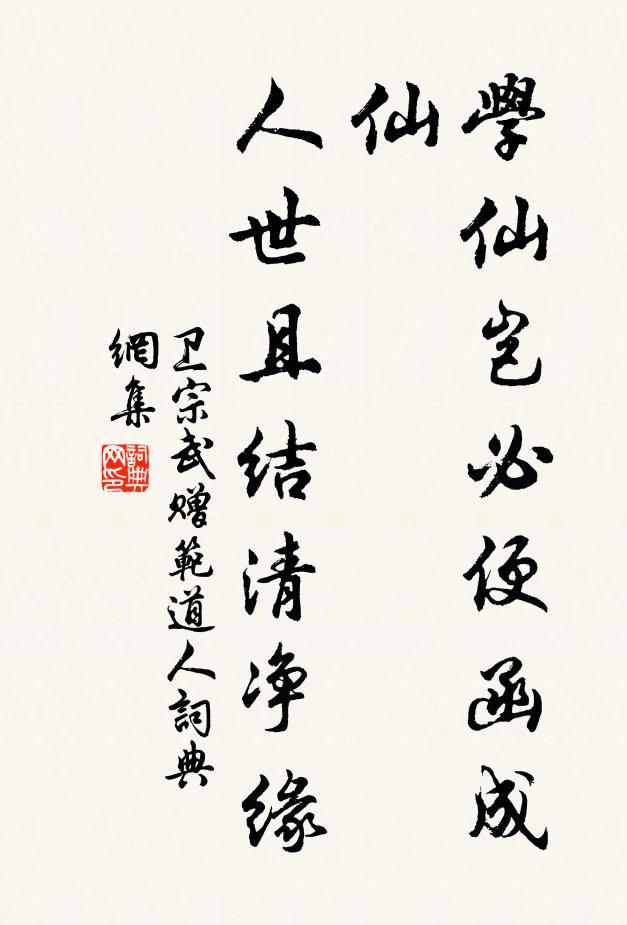 學仙岂必便函成
仙
人世且结清净缘
卫宗武赠範道人詞典
網集
詞典
网印